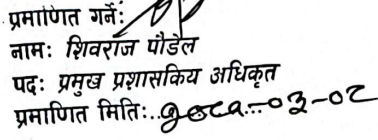 प्रमाणित गर्ने:
नाम: शिवराज पौडेल
पद: प्रमुख प्रशासकिय अधिकृत
प्रमाणित मिति:..२०८२...-०३-०२